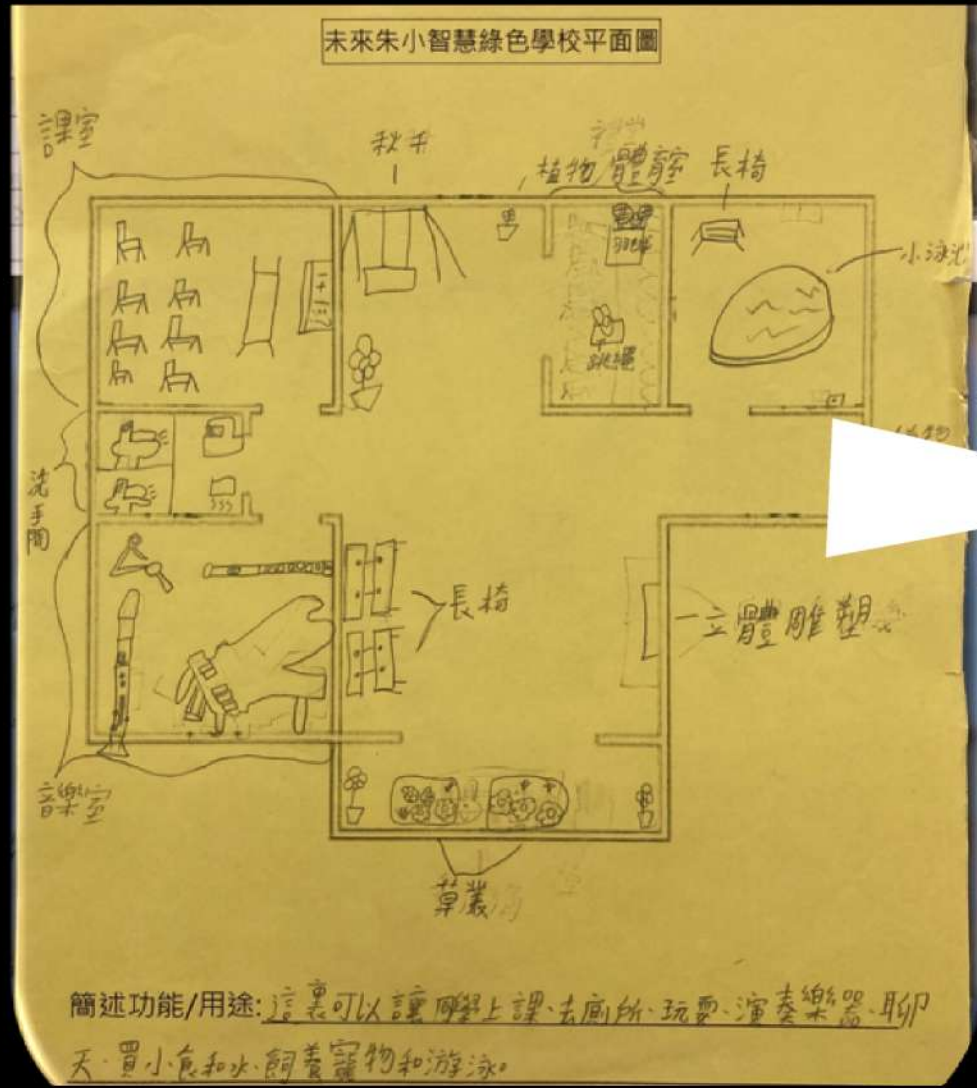 未來朱小智慧綠色學校平面圖
課室
秋千
植物
體育室
長椅
小泳池
羽毛球
跳繩
洗手間
長椅
立體雕塑
音樂室
草叢
簡述功能/用途:這裏可以讓同學上課、去廁所、玩耍、演奏樂器、聊
天、買小食和水、飼養寵物和游泳。